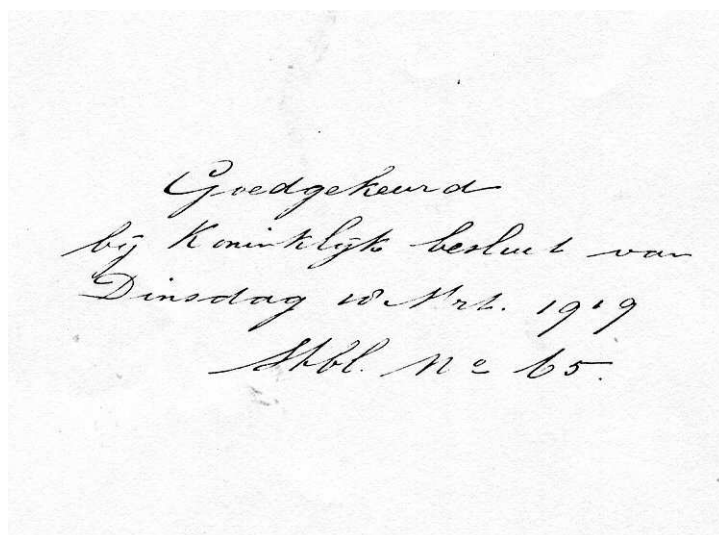 Goedgekeurd
bij Koninklijk besluit van
Dinsdag 18 Mrt. 1919
Stbl. No 65.